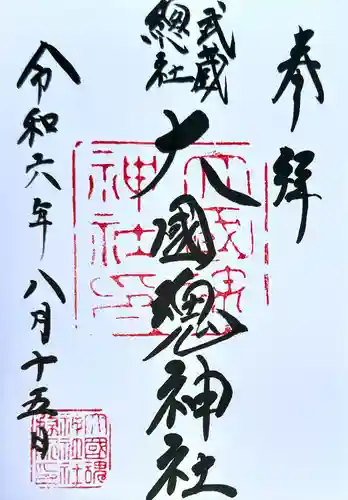 奉拝
武蔵
總社
大國魂神社
令和六年八月十五日
大國魂
神社
神社印